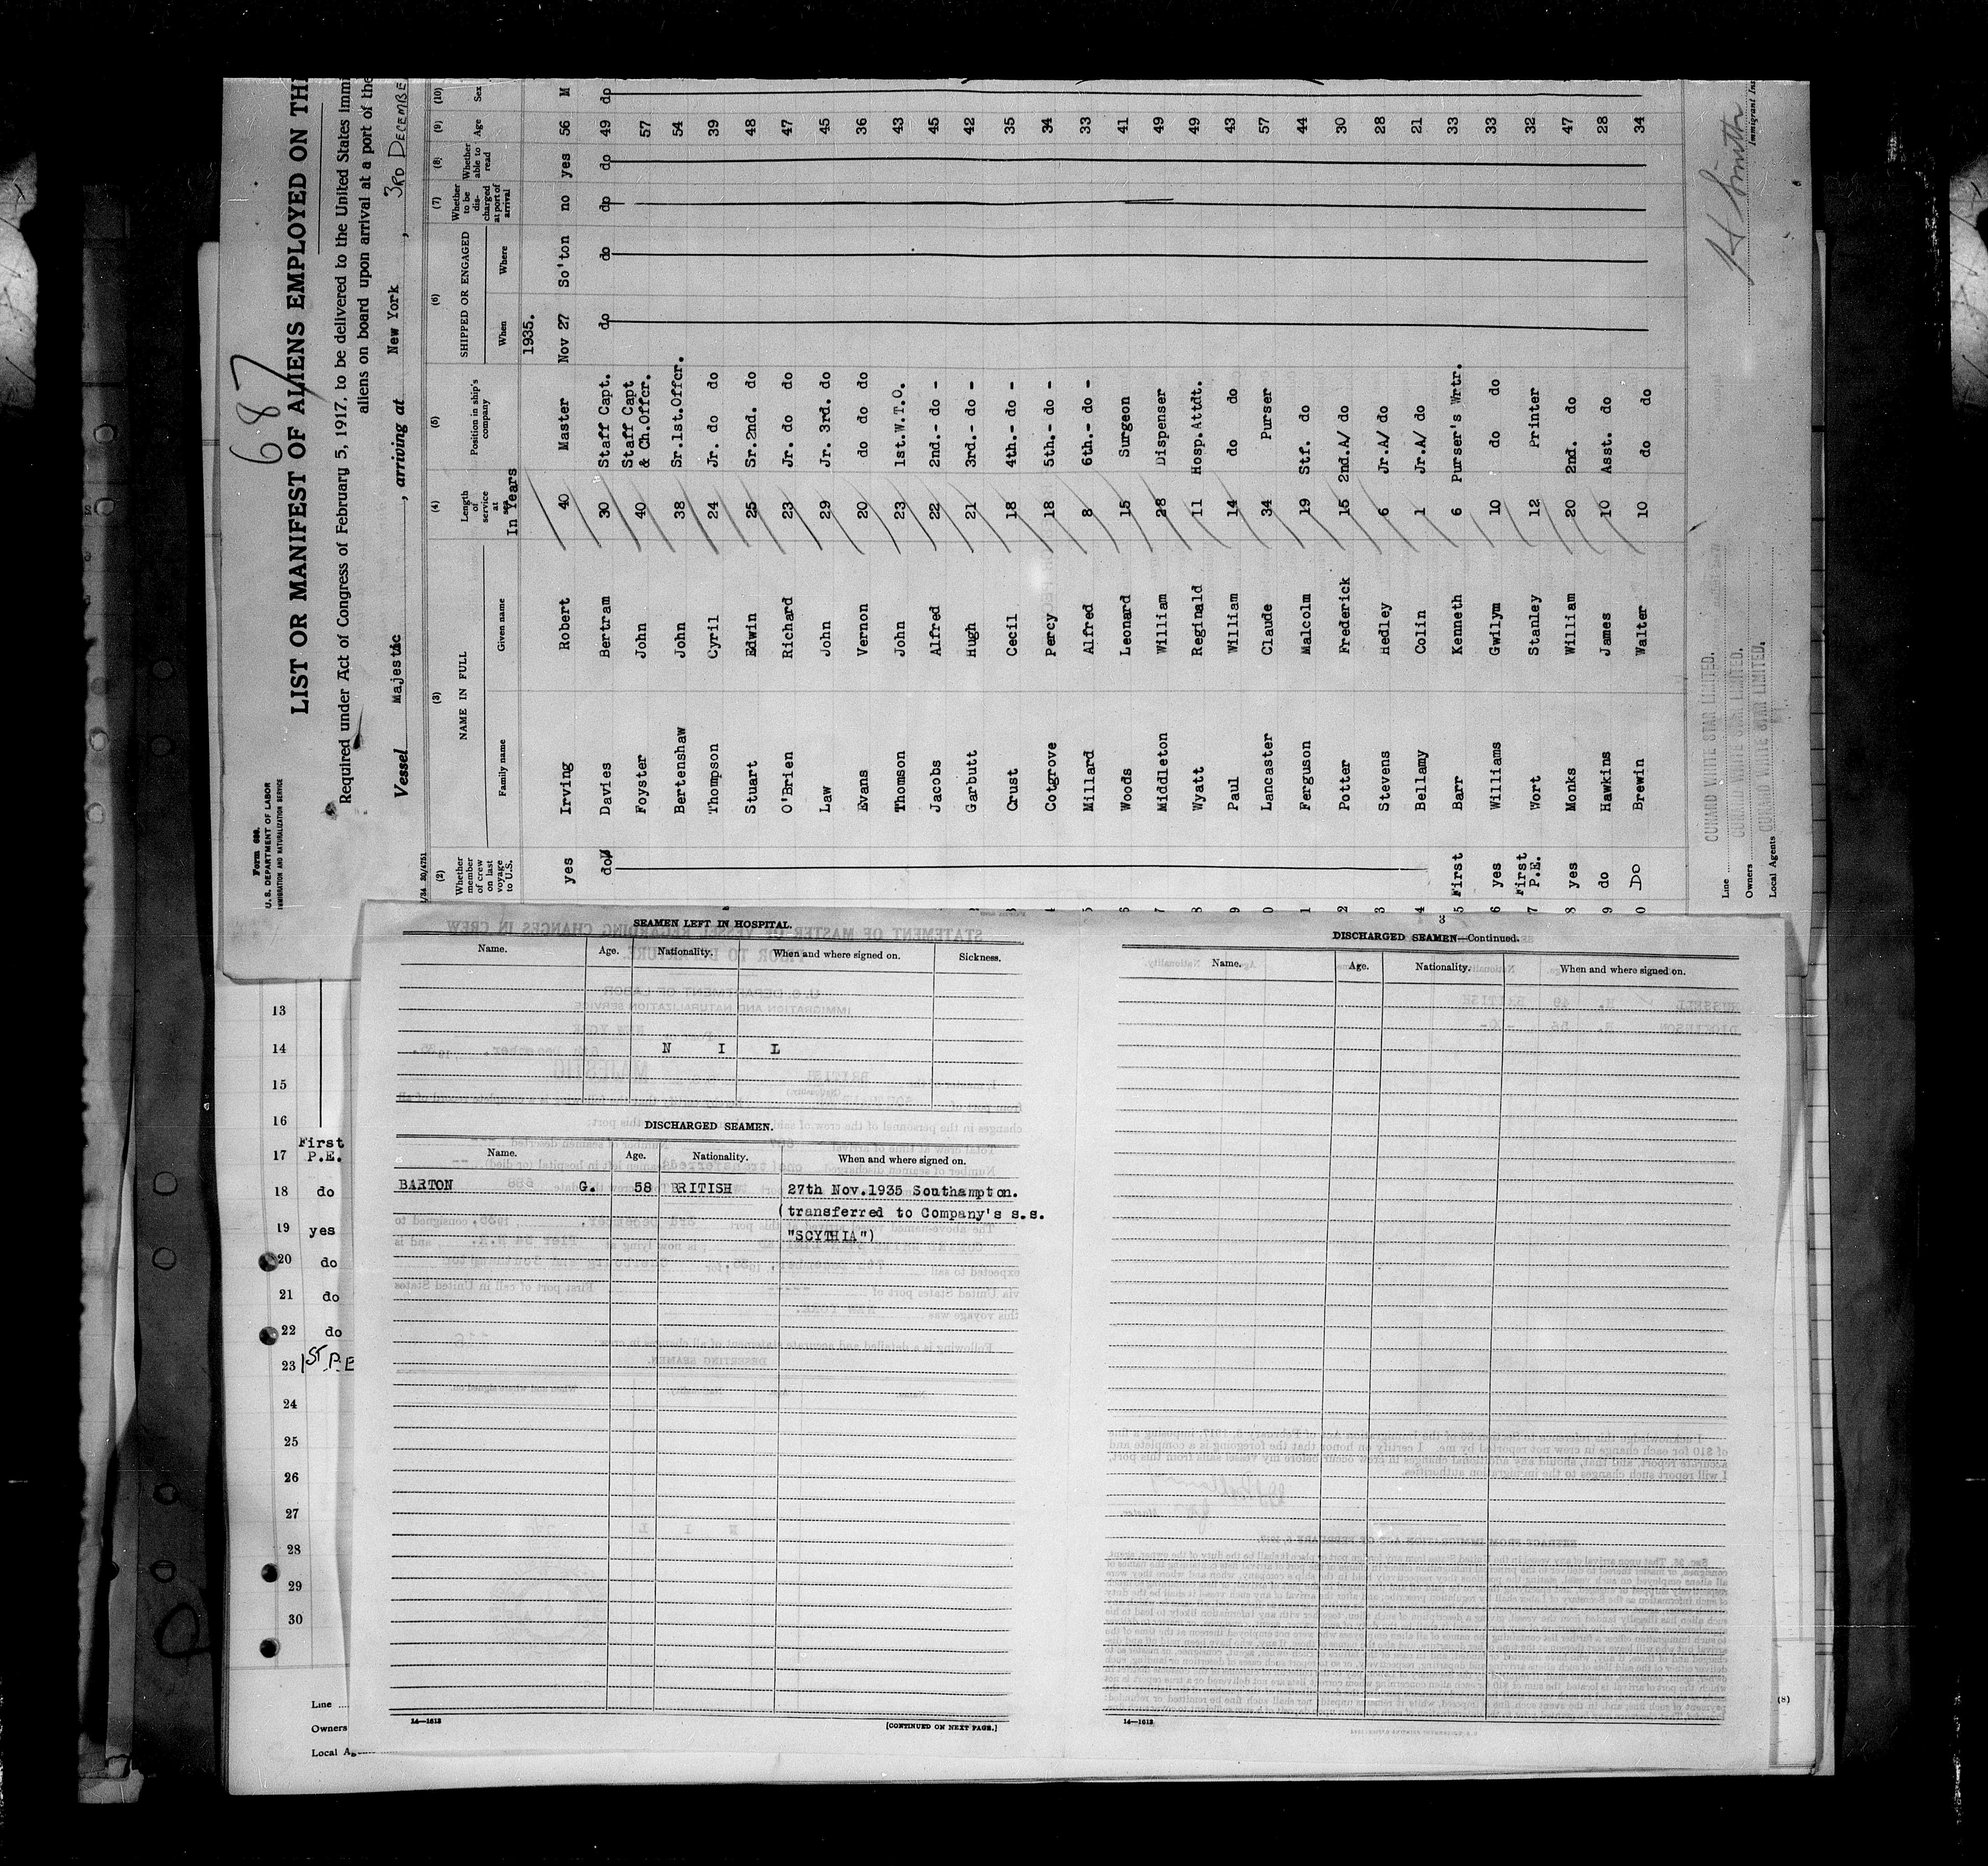 687
Form 680.
U. S. DEPARTMENT OF LABOR
IMMIGRATION AND NATURALIZATION SERVICE
LIST OR MANIFEST OF ALIENS EMPLOYED ON THE
Required under Act of Congress of February 5, 1917, to be delivered to the United States immi
aliens on board upon arrival at a port of the
Vessel Majestic, arriving at New York, 3RD DECEMBE
(2) (3) (4) (5) (6) (7) (8) (9) (10)
Whether member of crew on last voyage to U.S. NAME IN FULL Length of service at sea Position in ship's company SHIPPED OR ENGAGED Whether to be discharged at port of arrival Whether able to read Age Sex
Family name Given name In Years When Where
1935.
yes Irving Robert 40 Master Nov 27 So'ton no yes 56 M
do Davies Bertram 30 Staff Capt. do do do do 49 do
Foyster John 40 Staff Capt & Ch.Offcr. 57
Bertenshaw John 38 Sr.1st.Offcr. 54
Thompson Cyril 24 Jr. do do 39
Stuart Edwin 25 Sr.2nd. do 48
O'Brien Richard 23 Jr. do do 47
Law John 29 Jr. 3rd. do 45
Evans Vernon 20 do do do 36
Thomson John 23 1st.W.T.O. 43
Jacobs Alfred 22 2nd.- do - 45
Garbutt Hugh 21 3rd.- do - 42
Crust Cecil 18 4th.- do - 35
Cotgrove Percy 18 5th.- do - 34
Millard Alfred 8 6th.- do - 33
Woods Leonard 15 Surgeon 41
Middleton William 28 Dispenser 49
Wyatt Reginald 11 Hosp.Attdt. 49
Paul William 14 do do 43
Lancaster Claude 34 Purser 57
Ferguson Malcolm 19 Stf. do 44
Potter Frederick 15 2nd.A/ do 30
Stevens Hedley 6 Jr.A/ do 28
Bellamy Colin 1 Jr.A/ do 21
First Barr Kenneth 6 Purser's Wrtr. 33
yes Williams Gwilym 10 do do 33
First P.E. Wort Stanley 12 Printer 32
yes Monks William 20 2nd. do 47
do Hawkins James 10 Asst. do 28
DO Brewin Walter 10 do do 34
Line CUNARD WHITE STAR LIMITED.
Owners CUNARD WHITE STAR LIMITED.
Local Agents CUNARD WHITE STAR LIMITED.
H Smith
SEAMEN LEFT IN HOSPITAL.
Name. Age. Nationality. When and where signed on. Sickness.
N I L
DISCHARGED SEAMEN.
Name. Age. Nationality. When and where signed on.
BARTON G. 58 BRITISH 27th Nov.1935 Southampton.
(transferred to Company's s.s.
"SCYTHIA")
14—1613
[CONTINUED ON NEXT PAGE.]
3
DISCHARGED SEAMEN—Continued.
Name. Age. Nationality. When and where signed on.
14—1613
13
14
15
16
17 First P.E.
18 do
19 yes
20 do
21 do
22 do
23 1ST P.E
24
25
26
27
28
29
30
Line
Owners
Local Ag
(8)